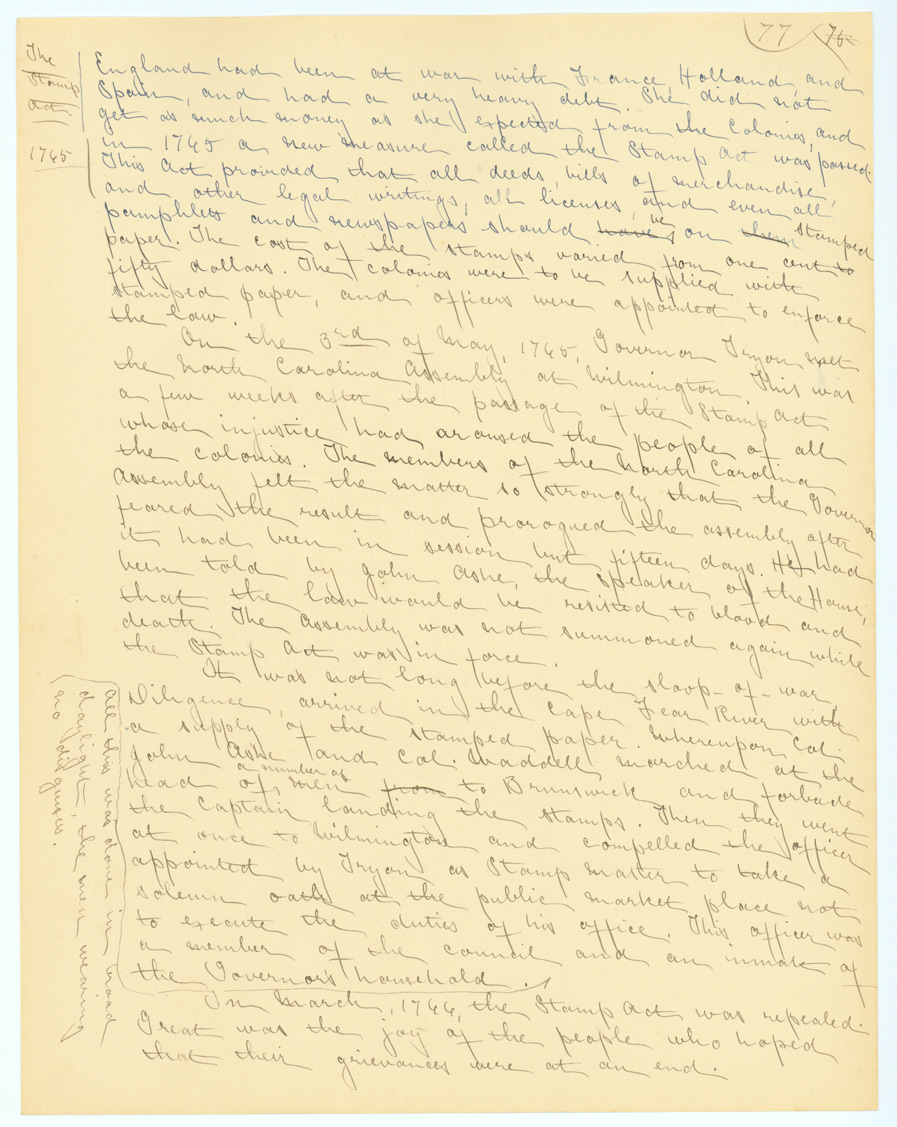 77 76
The
Stamp
Act.
1765
England had been at war with France, Holland, and
Spain, and had a very heavy debt. She did not
get as much money as she expected from the Colonies, and
in 1765 a new measure called the Stamp Act was passed.
This Act provided that all deeds, bills of merchandise,
and other legal writings, all licenses, and even all
pamphlets and newspapers should have be on them stamped
paper. The cost of the stamps varied from one cent to
fifty dollars. The colonies were to be supplied with
stamped paper, and officers were appointed to enforce
the law.
On the 3rd of May, 1765, Governor Tryon met
the North Carolina Assembly at Wilmington. This was
a few weeks after the passage of the Stamp Act
whose injustice had aroused the people of all
the colonies. The members of the North Carolina
Assembly felt the matter so strongly that the Governor
feared the result and prorogued the assembly after
it had been in session but fifteen days. He had
been told by John Ashe, the speaker of the House,
that the law would be resisted to blood and
death. The Assembly was not summoned again while
the Stamp Act was in force.
It was not long before the sloop-of-war
Diligence, arrived in the Cape Fear River with
a supply of the stamped paper. Whereupon Col.
John Ashe and Col. Waddell marched at the
head of a number of men from to Brunswick and forbade
the Captain landing the stamps. Then they went
at once to Wilmington and compelled the officer
appointed by Tryon as Stamp master to take a
solemn oath at the public market place not
to execute the duties of his office. This officer was
a member of the council and an inmate of
the Governor's household.
All this was done in broad
daylight, the men wearing
no disguises.
In March, 1766, the Stamp Act was repealed.
Great was the joy of the people who hoped
that their grievances were at an end.